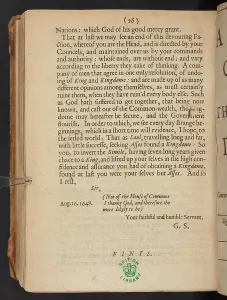 (26)
Nations: which God of his good mercy grant.
That at last we may see an end of this devouring Fa-
ction, whereof you are the Head, and is directed by your
Councels, and maintained over us by your commands
and authority: whose ends, are without end; and vary
according to the liberty they take of thinking. A com-
pany of men that agree in one only resolution, of undo-
ing of King and Kingdome: and are made up of as many
different opinions among themselves, as must certainly
ruine them, when they have ruin'd every body else. Such
as God hath suffered to get together, that being now
known, and cast out of the Common-wealth, the
dome may hereafter be secure, and the Government
flourish. In order to which, we see every day strange be-
ginnings, which in a short time will evidence, I hope, to
the selfed world. That as Saul, travelling long and far,
with little successe, seeking Asses found a Kingdome: So
you, to invert the Simile, having seven long years given
chace to a King, and lifted up your selves in the high con-
fidence and assurance you had of obtaining a Kingdome,
found at last you were your selves but Asses. And so
I rest,
Sir,
Aug. 10. 1648.
(Not of the House of Commons
I thank God, and therefore the
more likely to be)
Your faithful and humble Servant,
G. S.
FINIS.
BRITISH
LIBRARY
A